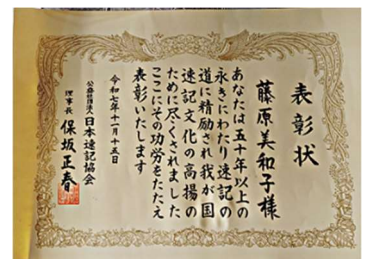 表彰状
藤原美和子様
あなたは五十年以上の
永きにわたり速記の
道に精励され我が国
速記文化の高揚の
ために尽くされました
ここにその功労をたたえ
表彰いたします
令和七年十一月十五日
公益社団法人日本速記協会
理事長 保坂正春